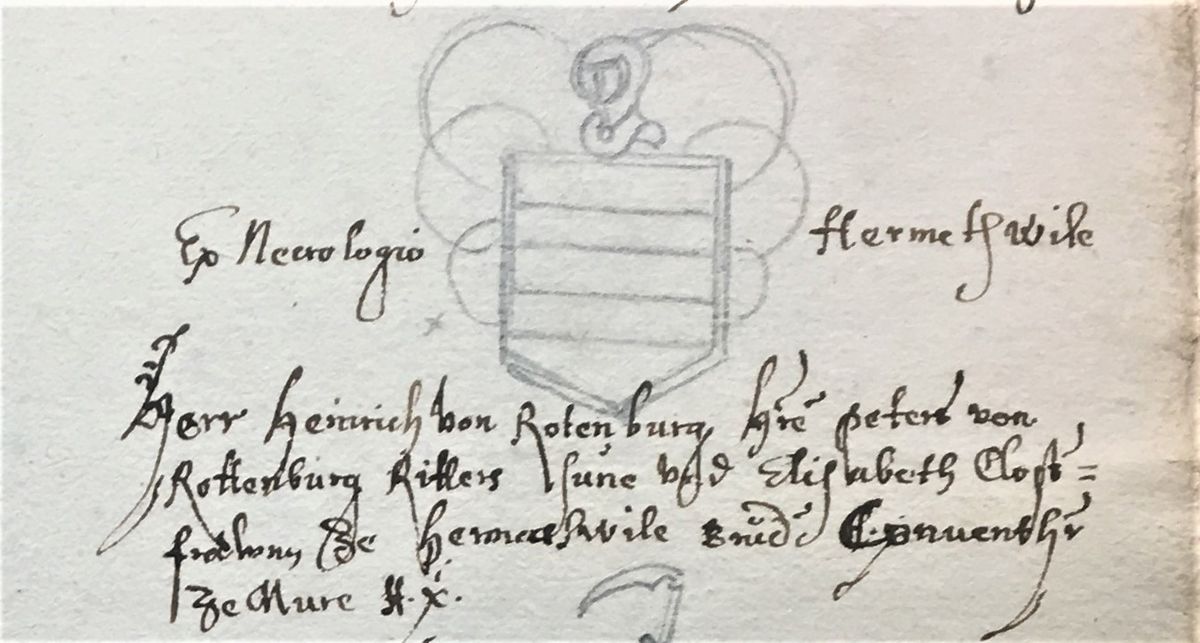 Ex Necrologio Hermetschwile
Herr Heinrich von Rotenburg, Hre peters von
Rottenburg Ritters sune vnd Elisabeth Clost=
frowen ze Hermatschwile Brud. Conventhr
ze Mure